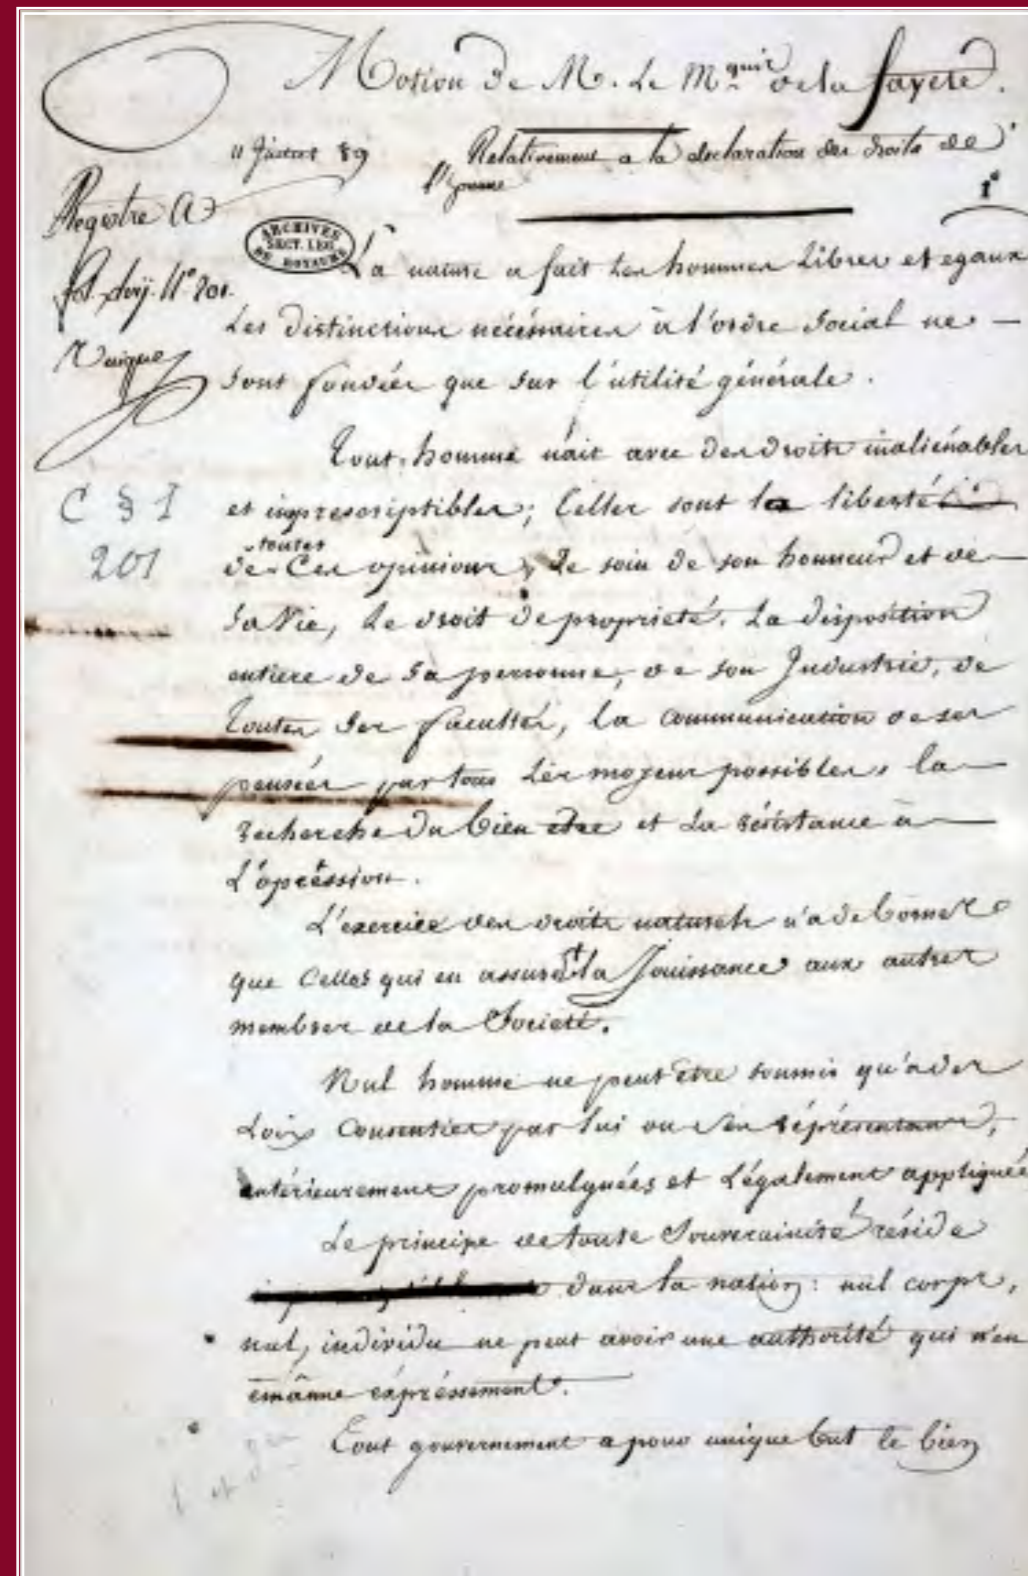 Motion de M. Le M.quis de la fayete.
11 Juillet 89 Relativement a la declaration des droits de
l'homme
1e
Registre A
ARCHIVES
SECT. LEG.
DU ROYAUME
La nature a fait les hommes Libres et egaux
Les distinctions nécéssaires à l'ordre Social ne
sont fondées que sur l'utilité générale.
Tout homme nait avec des droits inaliénables
et imprescriptibles; Celles sont la liberté
C § I
201
toutes
de Ces opinions, Le soin de son honneur et de
Sa Vie, Le droit de proprieté. La disposition
entiere de Sa personne, de son Industrie, de
toutes Ses facultés, la Communication de ses
pensées par tous Les moyens possibles, la
recherche du bien etre et La résistance à
L'opréssion.
L'exercice des droits naturels n'a de bornes
que Celles qui en assurent la Jouissance aux autres
membres de la Société.
Nul homme ne peut être soumis qu'a des
Loix Consenties par lui ou Ses réprésentans,
antérieurement promulguées et Légalement appliquées
Le principe de toute Souveraineté réside
dans la nation: nul corps,
nul, individu ne peut avoir une authorité qui n'en
émânne expréssement.
Tout gouvernement a pour unique but le bien